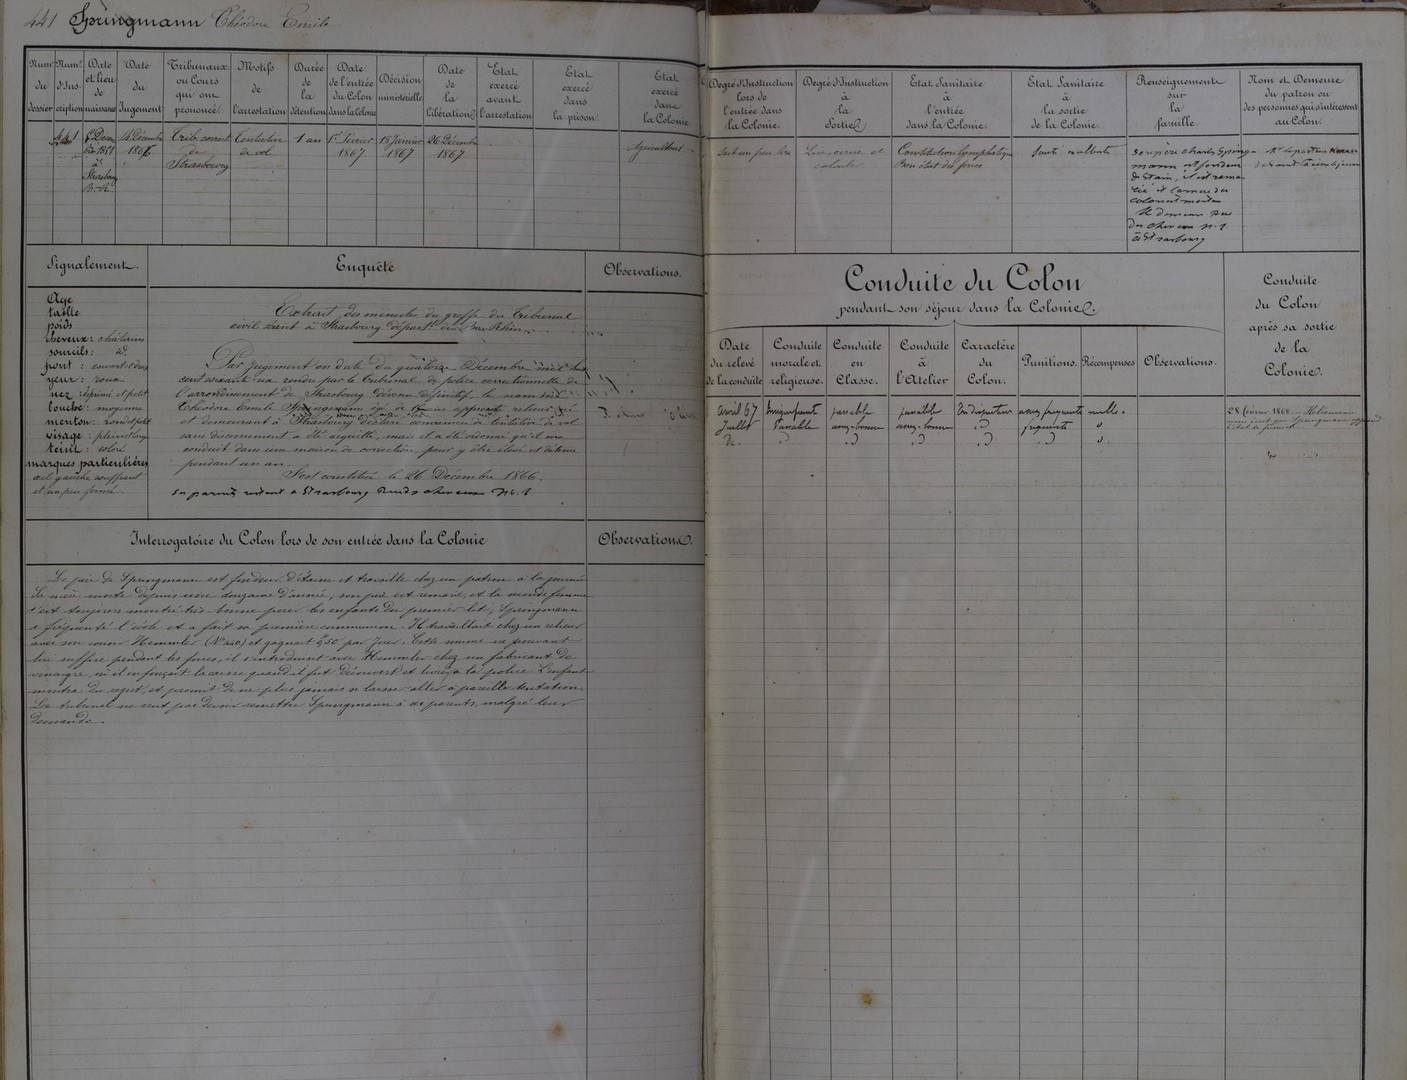 441 Springmann Théodore Emile
Num.
du
dossier
Num.
d'Ins-
cription
Date
et lieu
de
naissance
Date
du
Jugement
Tribunaux
ou Cours
qui ont
prononcé
Motifs
de
l'arrestation
Durée
de
la
détention
Date
de l'entrée
du Colon
dans la Colonie
Décision
ministérielle
Date
de
la
libération
Etat
exercé
avant
l'arrestation
Etat
exercé
dans
la prison
Etat
exercé
dans
la Colonie
1851
à
Strasbourg
14 Décembre
1866
Trib. correct.
de
Strasbourg
Tentative
de vol
1 an
1er Février
1867
18 Janvier
1867
26 Décembre
1867
Agriculteur
Signalement.
Age
taille
poids
cheveux: châtains
sourcils: id.
front: couvert et bas
yeux: roux
nez: déprimé et petit
bouche: moyenne
menton: rond et petit
visage: plein et long
teint: coloré
marques particulières
œil gauche souffrant
et un peu fermé
Enquête
Extrait des minutes du greffe du Tribunal
civil séant à Strasbourg départ. du Bas Rhin.
Par jugement en date du quatorze Décembre mil huit
cent soixante six rendu par le tribunal de police correctionnelle de
l'arrondissement de Strasbourg devenu définitif, le nommé
Théodore Emile Springmann âgé de 15 ans apprenti relieur, né
et demeurant à Strasbourg déclaré convaincu de tentative de vol
sans discernement a été acquitté, mais il a été ordonné qu'il sera
conduit dans une maison de correction pour y être élevé et détenu
pendant un an.
S'est constitué le 26 Décembre 1866.
Ses parents restent à Strasbourg Rue des cheveux No. 1
Observations.
Interrogatoire du Colon lors de son entrée dans la Colonie
Observations.
Le père de Springmann est fondeur d'étain et travaille chez un patron à la journée
Sa mère morte depuis une douzaine d'années, son père est remarié, et la seconde femme
s'est toujours montré très bonne pour les enfants du premier lit, Springmann
a fréquenté l'école et a fait sa première communion. Il travaillait chez un relieur
avec son Hemmler (No 440) et gagnait 0,50 par jour. Cette somme ne pouvant
lui suffire pendant les foires, il s'introduisit avec Hemmler chez un fabricant de
vinaigre, où il enfonçait la caisse quand il fut découvert et livré à la police. L'enfant
montra du regret, et promit de ne plus jamais se laisser aller à pareille tentation
Le tribunal ne crut pas devoir remettre Springmann à ses parents, malgré leur
demande.
Degré d'Instruction
lors de
l'entrée dans
la Colonie.
Degré d'Instruction
à
la
Sortie
Etat Sanitaire
à
l'entrée
dans la Colonie.
Etat Sanitaire
à
la sortie
de la Colonie.
Renseignements
sur
la
famille.
Nom et Demeure
du patron ou
des personnes qui s'intéressent
au Colon.
Sait un peu lire
Lire, écrire et
calculer
Constitution lymphatique
Bon état des forces
Santé
Son père Charles Spring-
mann est fondeur
d'étain, il est rema-
rié et la mère du
colon est morte
Il demeure Rue
des cheveux No. 1
à Strasbourg
Conduite du Colon
pendant son séjour dans la Colonie.
Date
du relevé
de la conduite
Conduite
morale et
religieuse.
Conduite
en
Classe.
Conduite
à
l'Atelier
Caractère
du
Colon.
Punitions.
Récompenses
Observations.
Conduite
du Colon
après sa sortie
de la
Colonie.
Avril 67 insignifiante passable passable assez fréquente nulle.
Juillet Passable assez bonne assez bonne fréquente
28 février 1868.